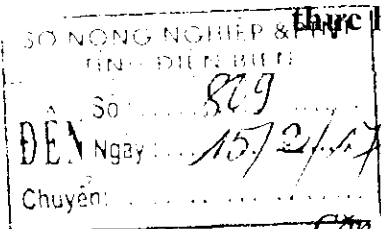 thực h
SỞ NÔNG NGHIỆP & PTNT
TỈNH ĐIỆN BIÊN
Số: 829
ĐẾN Ngày: 15/2/17
Chuyển:
Căn